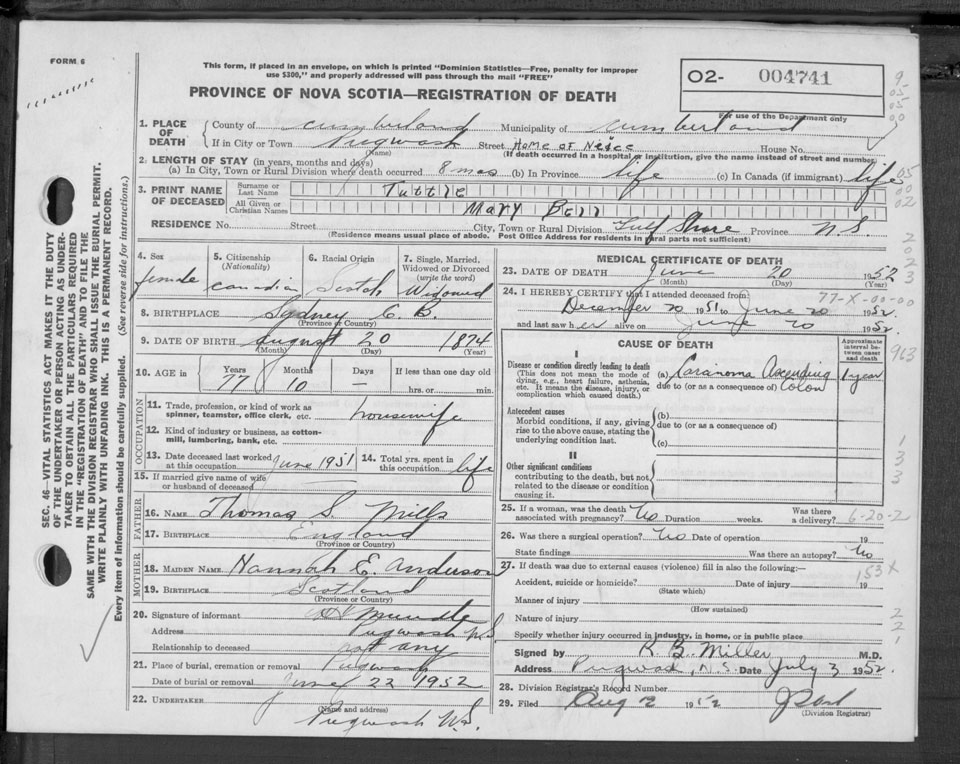 FORM 6
This form, if placed in an envelope, on which is printed "Dominion Statistics—Free, penalty for improper
use $300," and properly addressed will pass through the mail "FREE"
PROVINCE OF NOVA SCOTIA—REGISTRATION OF DEATH
O2- 004741
For use of the Department only
1. PLACE OF DEATH
County of Cumberland Municipality of Cumberland
If in City or Town Pugwash Street Home of Neice House No.
(Name) (If death occurred in a hospital or institution, give the name instead of street and number)
2. LENGTH OF STAY (in years, months and days)
(a) In City, Town or Rural Division where death occurred 8 mos (b) In Province life (c) In Canada (if immigrant) life
3. PRINT NAME OF DECEASED
Surname or Last Name Tuttle
All Given or Christian Names Mary Bell
RESIDENCE No. Street City, Town or Rural Division Gulf Shore Province N.S.
(Residence means usual place of abode. Post Office Address for residents in rural parts not sufficient)
4. Sex female
5. Citizenship (Nationality) Canadian
6. Racial Origin Scotch
7. Single, Married, Widowed or Divorced (write the word) Widowed
8. BIRTHPLACE Sydney C.B.
(Province or Country)
9. DATE OF BIRTH August 20 1874
(Month) (Day) (Year)
10. AGE in Years 77 Months 10 Days — If less than one day old
hrs. or min.
OCCUPATION
11. Trade, profession, or kind of work as spinner, teamster, office clerk, etc. housewife
12. Kind of industry or business, as cotton-mill, lumbering, bank, etc.
13. Date deceased last worked at this occupation June 1951
14. Total yrs. spent in this occupation life
15. If married give name of wife or husband of deceased
FATHER
16. NAME Thomas S. Mills
17. BIRTHPLACE England
(Province or Country)
MOTHER
18. MAIDEN NAME Hannah E. Anderson
19. BIRTHPLACE Scotland
(Province or Country)
20. Signature of informant Mundle
Address Pugwash N.S
Relationship to deceased not any
21. Place of burial, cremation or removal Pugwash
Date of burial or removal June 22 1952
22. UNDERTAKER
(Name and address)
Pugwash N.S.
MEDICAL CERTIFICATE OF DEATH
23. DATE OF DEATH June 20 1952
(Month) (Day) (Year)
24. I HEREBY CERTIFY that I attended deceased from: 77-X-00-00
December 20 1951 to June 20 1952
and last saw her alive on June 20 1952.
CAUSE OF DEATH
Approximate interval between onset and death
I
Disease or condition directly leading to death
(This does not mean the mode of dying, e.g., heart failure, asthenia, etc. It means the disease, injury, or complication which caused death.)
(a) Caranoma Ascending Colon 1 year
due to (or as a consequence of)
Antecedent causes
Morbid conditions, if any, giving rise to the above cause, stating the underlying condition last.
(b)
due to (or as a consequence of)
(c)
II
Other significant conditions
contributing to the death, but not related to the disease or condition causing it.
25. If a woman, was the death associated with pregnancy? No Duration weeks. Was there a delivery? 6-20-2
26. Was there a surgical operation? No Date of operation 19
State findings Was there an autopsy? No
27. If death was due to external causes (violence) fill in also the following:—
153 x
Accident, suicide or homicide? Date of injury 19
(State which)
Manner of injury
(How sustained)
Nature of injury
Specify whether injury occurred in industry, in home, or in public place
Signed by R. B. Miller M.D.
Address Pugwash, N.S. Date July 3 1952.
28. Division Registrar's Record Number
29. Filed Aug 2 1952
(Division Registrar)
SEC. 46—VITAL STATISTICS ACT MAKES IT THE DUTY
OF THE UNDERTAKER OR PERSON ACTING AS UNDER-
TAKER TO OBTAIN ALL THE PARTICULARS REQUIRED
IN THE "REGISTRATION OF DEATH" AND TO FILE THE
SAME WITH THE DIVISION REGISTRAR WHO SHALL ISSUE THE BURIAL PERMIT.
WRITE PLAINLY WITH UNFADING INK. THIS IS A PERMANENT RECORD.
Every item of Information should be carefully supplied. (See reverse side for instructions.)
9
05
05
00
05
00
02
2
2
2
3
963
1
3
3
2
2
1